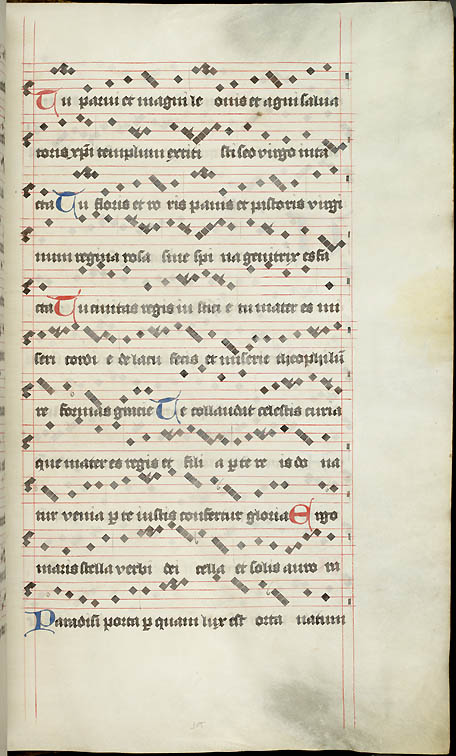 Tu parui et magni le onis et agni salua
toris xpi templum extiti sti seo virgo inta
cta Tu floris et ro ris panis et pastoris virgi
num regina rosa sine spi na genitrix es fa
cta Tu ciuitas regis iu sticie tu mater es mi
seri cordi e de lacu fecis et miserie theophilū
re formas gracie Te collaudat celestis curia
que mater es regis et fili a p te re is do na
tur venia p te iustis confertur gloria Ergo
maris stella verbi dei cella et solis auro ra
Paradisi porta p quam lux est orta natum